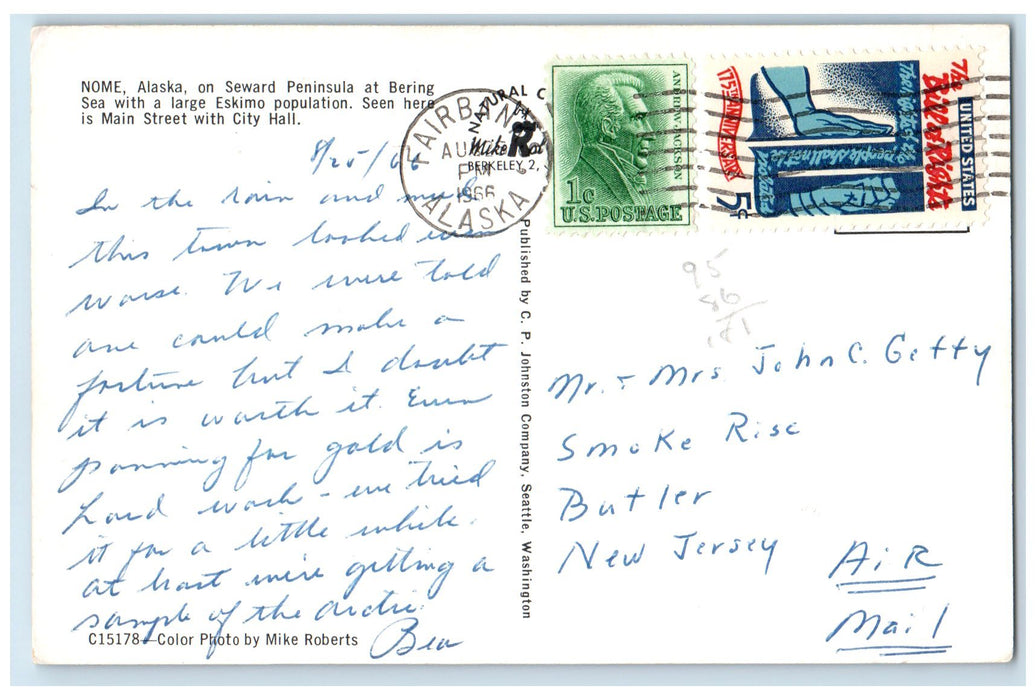 NOME, Alaska, on Seward Peninsula at Bering
Sea with a large Eskimo population. Seen here
is Main Street with City Hall.
8/25/66
In the rain and mud
this town looked even
worse. We were told
one could make a
fortune but I doubt
it is worth it. Even
panning for gold is
hard work - we tried
it for a little while.
at least we're getting a
sample of the arctic.
Bea
C15178—Color Photo by Mike Roberts
Published by C. P. Johnston Company, Seattle, Washington
NATURAL C
Mike
BERKELEY 2,
FAIRBANKS
AU
PM
1966
ALASKA
ANDREW JACKSON
1c
U.S. POSTAGE
175TH ANNIVERSARY
The
Bill of Rights
UNITED STATES
5c
95
86
Mr. & Mrs John C. Getty
Smoke Rise
Butler
New Jersey
AiR
Mail